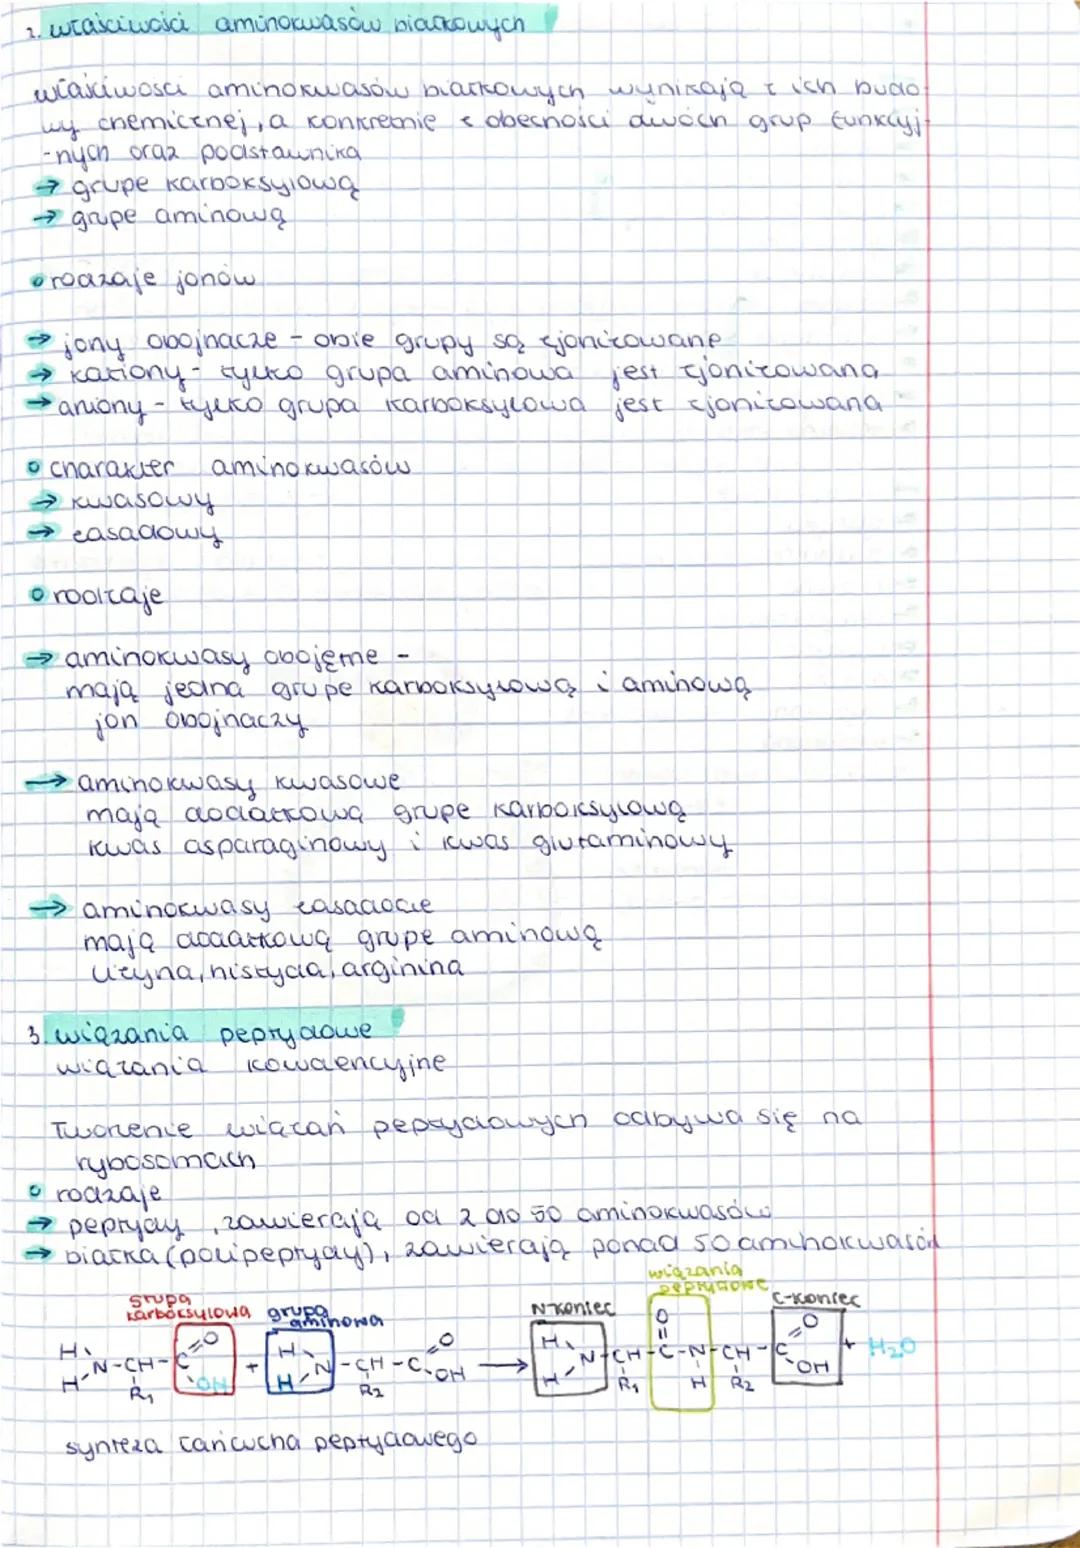 2. właściwości aminokwasów białkowych
właściwosci aminokwasów białkowych wynikają z ich budo
wy chemicznej, a konkretnie z obecności dwóch grup funkcyj-
-nych oraz podstawnika
→ grupe karboksylową
→ grupe aminową
• rodzaje jonów
→ jony obojnacze - obie grupy są zjonizowane
→ kationy - tylko grupa aminowa jest zjonizowana
→ aniony - tylko grupa karboksylowa jest zjonizowana
• charakter aminokwasów
→ kwasowy
→ zasadowy
• rodzaje
→ aminokwasy obojętne -
mają jedna grupe karboksylową i aminową
jon obojnaczy
→ aminokwasy kwasowe
mają dodatkową grupe karboksylową
kwas asparaginowy i kwas glutaminowy
→ aminokwasy zasadowe
mają dodatkową grupe aminową
lizyna, histydia, arginina
3. wiązania peptydowe
wiązania kowaencyjne
Tworzenie wiązań peptydowych odbywa się na
rybosomach
• rodzaje
→ peptydy, zawierają od 2 do 50 aminokwasów
→ białka (polipeptydy), zawierają ponad 50 aminokwasów
grupa karboksylowa grupa aminowa N-koniec wiązania peptydowe C-koniec
H H N-CH-C=O OH R1 + H H N-CH-C=O OH R2 → H H N-CH-C-N-CH-C=O OH O R1 H R2 + H2O
synteza łańcucha peptydowego